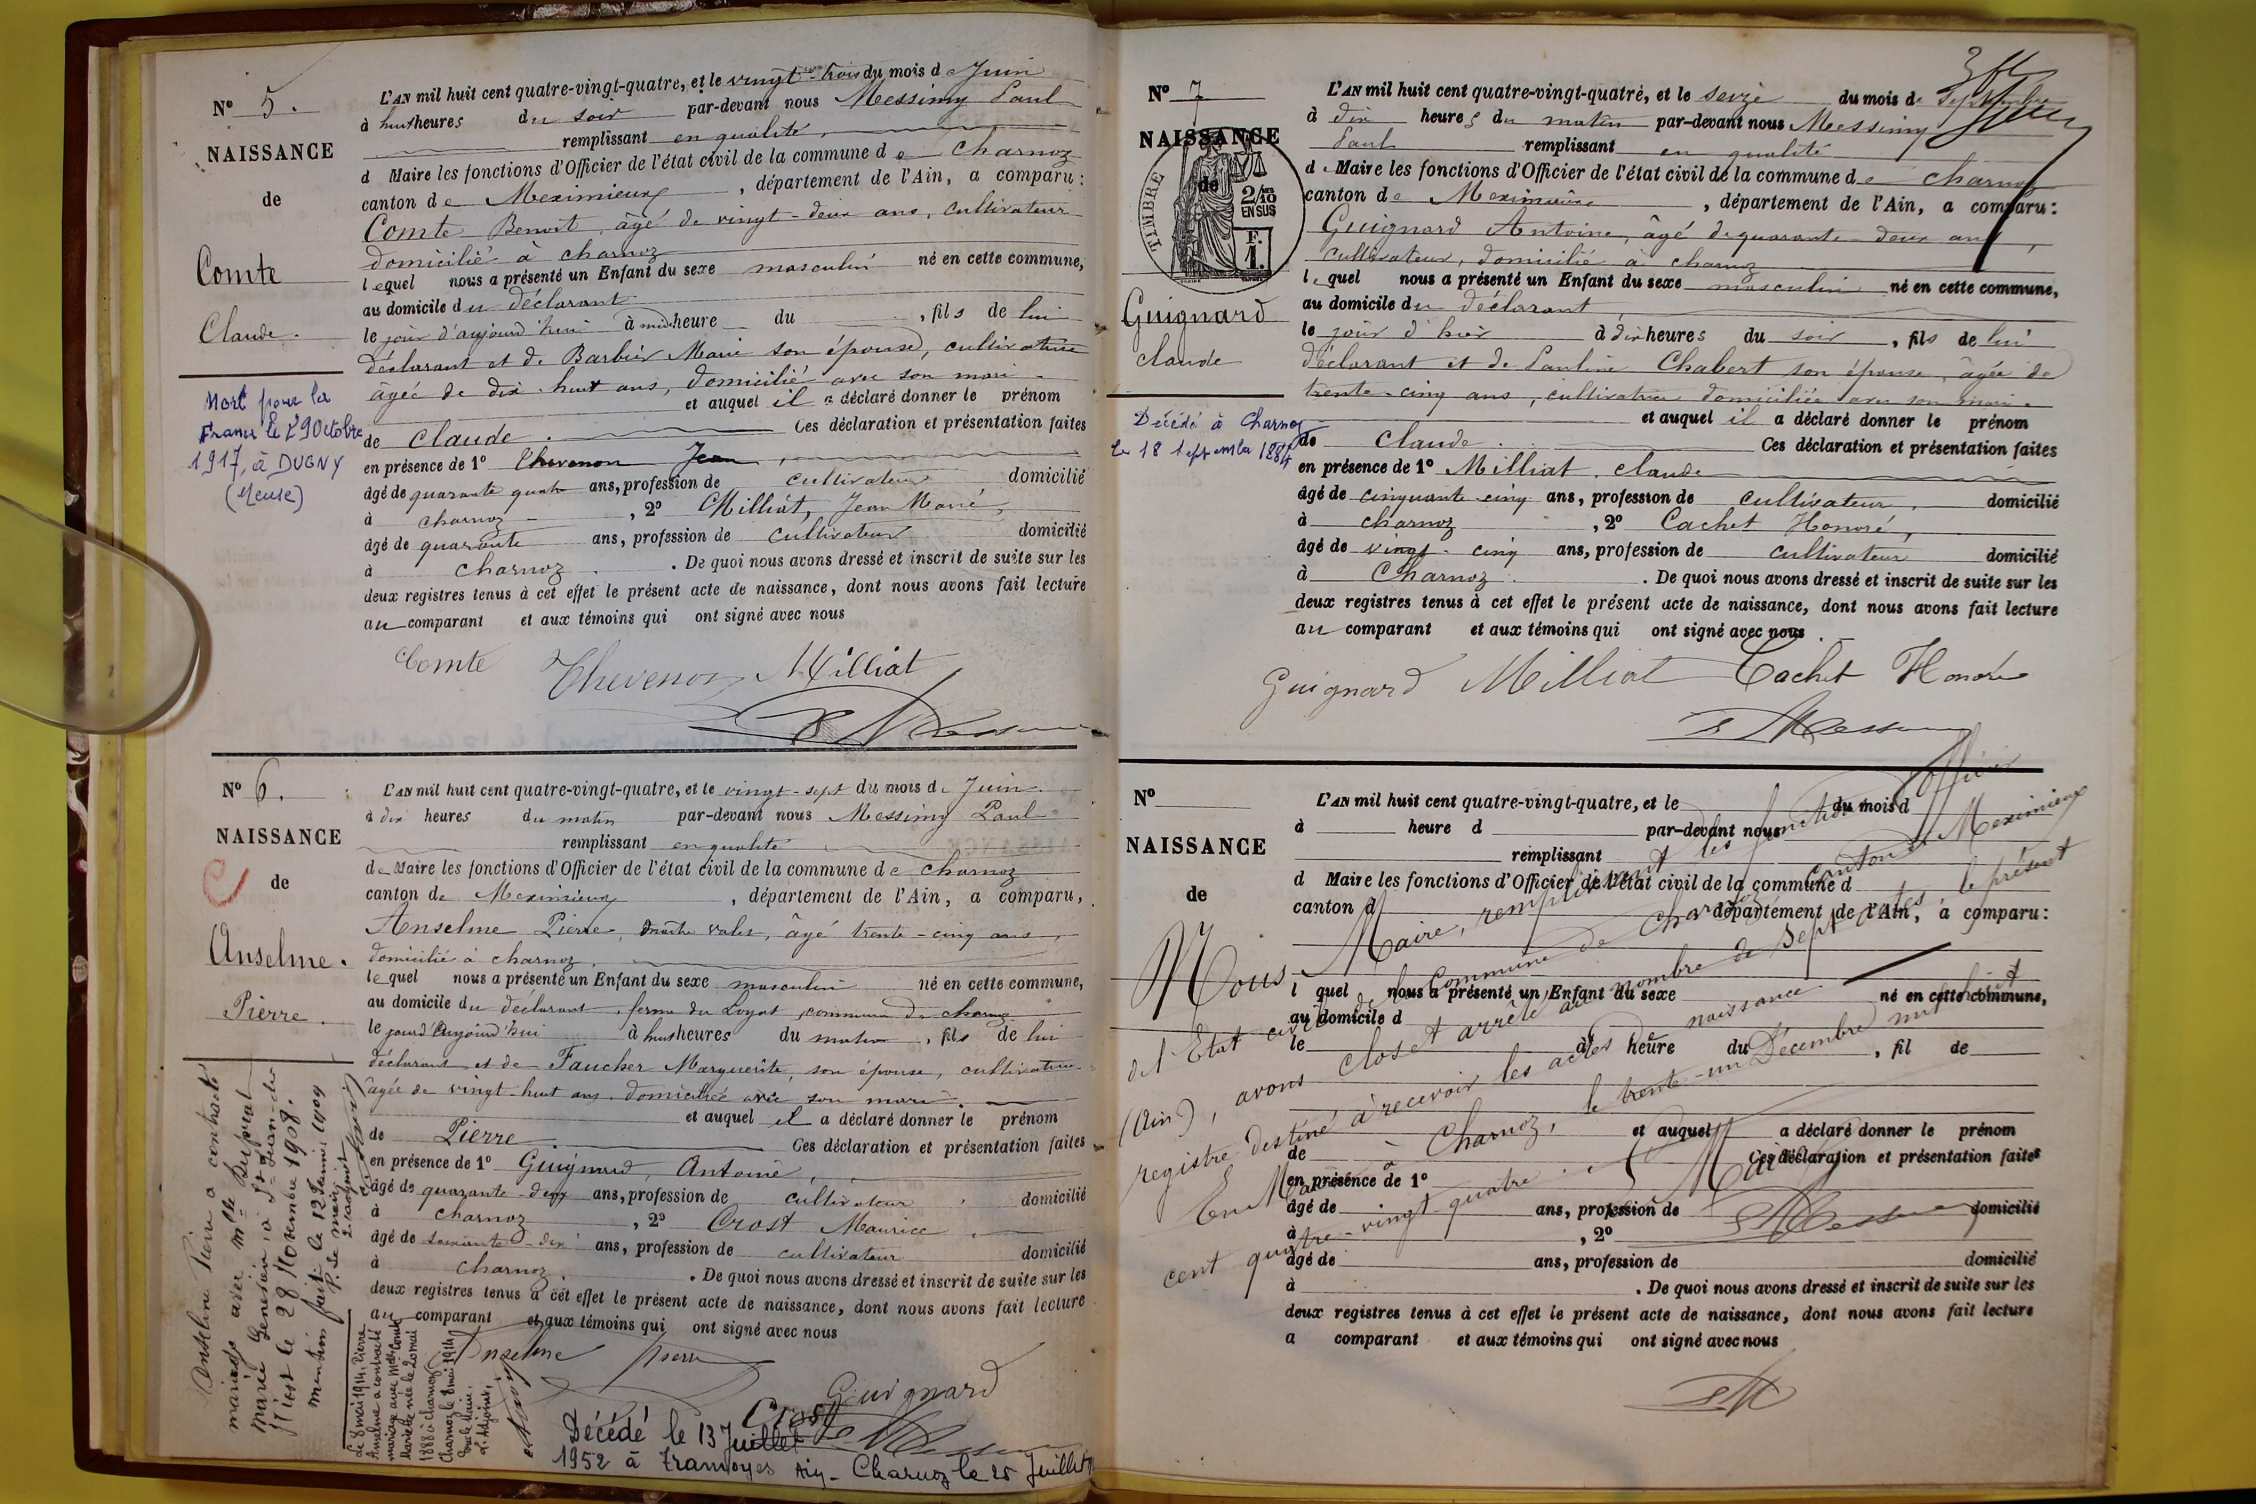 N° 5.
NAISSANCE
de
Comte
Claude.
Mort pour la
France le 29 Octobre
1917, à DUGNY
(Meuse)
L'AN mil huit cent quatre-vingt-quatre, et le vingt-trois du mois de Juin
à huit heures du soir par-devant nous Messimy Paul
remplissant en qualité
d Maire les fonctions d'Officier de l'état civil de la commune de Charnoz
canton de Meximieux, département de l'Ain, a comparu :
Comte Benoit, âgé de vingt-deux ans, cultivateur
domicilié à charnoz
lequel nous a présenté un Enfant du sexe masculin né en cette commune,
au domicile du déclarant
le jour d'aujourd'hui à midi heure du , fils de lui
déclarant et de Barbier Marie son épouse, cultivatrice
âgée de dix-huit ans, domicilié avec son mari
et auquel il a déclaré donner le prénom
de Claude. Ces déclaration et présentation faites
en présence de 1° Thevenon Jean,
âgé de quarante quatre ans, profession de cultivateur domicilié
à charnoz, 2° Milliat, Jean Marie,
âgé de quarante ans, profession de cultivateur domicilié
à charnoz. De quoi nous avons dressé et inscrit de suite sur les
deux registres tenus à cet effet le présent acte de naissance, dont nous avons fait lecture
au comparant et aux témoins qui ont signé avec nous
Comte Thevenon Milliat
P Messimy
N° 6.
NAISSANCE
de
Anselme.
Pierre.
L'AN mil huit cent quatre-vingt-quatre, et le vingt-sept du mois de Juin
à dix heures du matin par-devant nous Messimy Paul
remplissant en qualité
de Maire les fonctions d'Officier de l'état civil de la commune de charnoz
canton de Meximieux, département de l'Ain, a comparu,
Anselme Pierre, maître valet, âgé trente-cinq ans,
domicilié à charnoz.
lequel nous a présenté un Enfant du sexe masculin né en cette commune,
au domicile du déclarant, ferme du Loyat, commune de charnoz
le jour d'aujourd'hui à huit heures du matin, fils de lui
déclarant et de Faucher Marguerite, son épouse, cultivatrice
âgée de vingt-huit ans domiciliée avec son mari.
et auquel il a déclaré donner le prénom
de Pierre. Ces déclaration et présentation faites
en présence de 1° Guignard, Antoine,
âgé de quarante-deux ans, profession de cultivateur domicilié
à charnoz, 2° Crost Maurice
âgé de soixante-dix ans, profession de cultivateur domicilié
à charnoz. De quoi nous avons dressé et inscrit de suite sur les
deux registres tenus à cet effet le présent acte de naissance, dont nous avons fait lecture
au comparant et aux témoins qui ont signé avec nous
Anselme pierre
Guignard
Crost P Messimy
Anselme Pierre a contracté
mariage avec Mlle Duprat
Marie à St-Jean-de-
le 28 Novembre 1908.
mention faite le 12 Janvier 1909
P. Le maire
Le 8 mai 1914, Pierre
Anselme a contracté
mariage avec Melle Comte
Mariette née le 20 mai
1888 à charnoz
Charnoz le 8 mai 1914
Pour le Maire.
L'Adjoint,
Décédé le 13 Juillet
1952 à Tramoyes Ain - Charnoz le 25 Juillet
N° 7
NAISSANCE
de
TIMBRE
2/10
EN SUS
F.
1.
Guignard
claude.
Décédé à Charnoz
le 18 septembre 1884
L'AN mil huit cent quatre-vingt-quatre, et le seize du mois de Septembre
à dix heures du matin par-devant nous Messimy
Paul remplissant en qualité
de Maire les fonctions d'Officier de l'état civil de la commune de charnoz
canton de Meximieux, département de l'Ain, a comparu :
Guignard Antoine, âgé de quarante deux ans,
cultivateur, domicilié à charnoz
lequel nous a présenté un Enfant du sexe masculin né en cette commune,
au domicile du déclarant
le jour d'hier à dix heures du soir, fils de lui
déclarant et de Pauline Chabert son épouse, âgée de
trente-cinq ans, cultivatrice domiciliée avec son mari.
et auquel il a déclaré donner le prénom
de Claude. Ces déclaration et présentation faites
en présence de 1° Milliat claude
âgé de cinquante cinq ans, profession de cultivateur, domicilié
à charnoz, 2° Cachet Honoré,
âgé de vingt-cinq ans, profession de cultivateur domicilié
à Charnoz. De quoi nous avons dressé et inscrit de suite sur les
deux registres tenus à cet effet le présent acte de naissance, dont nous avons fait lecture
au comparant et aux témoins qui ont signé avec nous.
Guignard Milliat Cachet Honoré
P Messimy
N°
NAISSANCE
de
L'AN mil huit cent quatre-vingt-quatre, et le du mois d
à heure d par-devant nous
remplissant
d Maire les fonctions d'Officier de l'état civil de la commune d
canton d département de l'Ain, a comparu :
l quel nous a présenté un Enfant du sexe né en cette commune,
au domicile d
le à heure du , fil de
et auquel a déclaré donner le prénom
de Ces déclaration et présentation faites
en présence de 1°
âgé de ans, profession de domicilié
à , 2°
âgé de ans, profession de domicilié
à . De quoi nous avons dressé et inscrit de suite sur les
deux registres tenus à cet effet le présent acte de naissance, dont nous avons fait lecture
a comparant et aux témoins qui ont signé avec nous
Nous Maire, remplissant les fonctions d'officier
de l'Etat civil de la commune de Charnoz canton de Meximieux
(Ain), avons clos et arrêté au nombre de sept actes le présent
registre destiné à recevoir les actes de naissance.
En Mairie à Charnoz, le trente-un Décembre mil huit
cent quatre-vingt-quatre.
Le Maire
P Messimy
PM